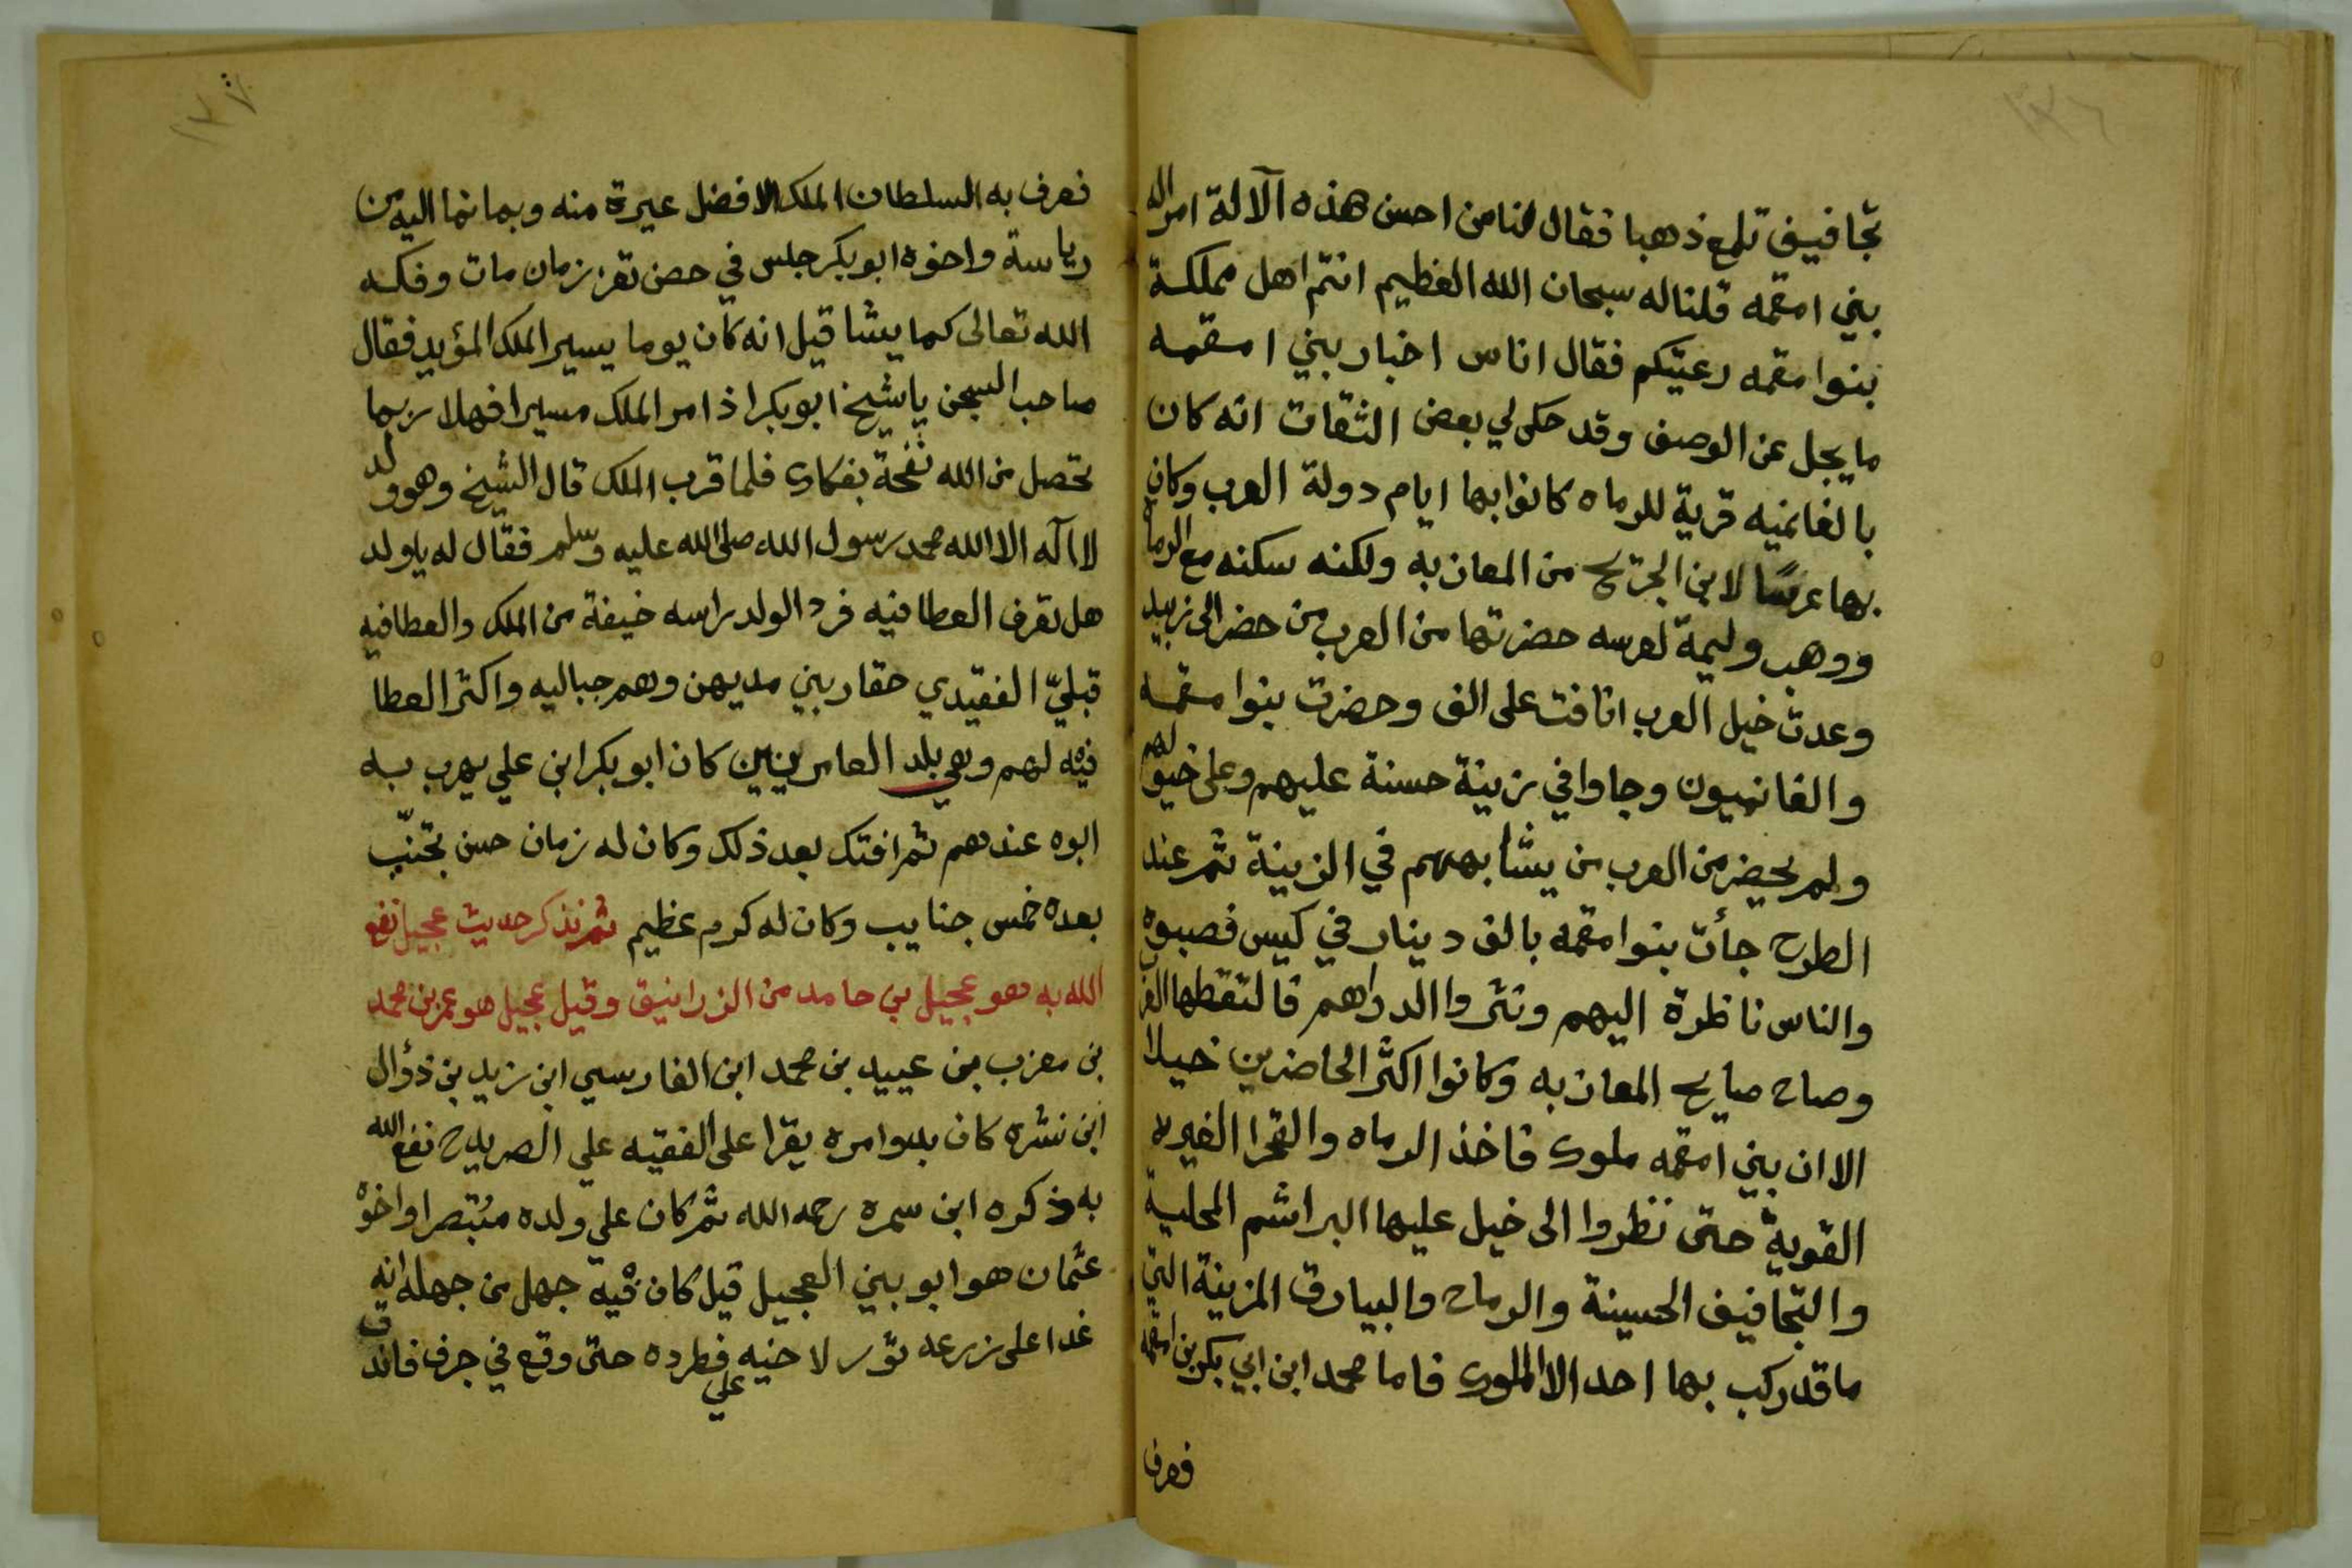 ١٣٦
تجافيف تلمع ذهبا فقال لنا من احسن هذه الآلالة امراله
بني امقمه قلنا له سبحان الله العظيم انتم اهل مملكة
بنوا مقمه رعيتكم فقال اناس اخبار بيني امقمه
ما يجل عن الوصف وقد حكى لي بعض الثقات انه كان
بالغانميه قرية للرماه كانوا بها ايام دولة العرب وكان
بها عرسًا لابن الجريح من المعازبه ولكنه سكنه مع الرماة
ووهب وليمة لعرسه حضرتها من العرب من حضر الى زبيد
وعدت خيل العرب انافت على الف وحضرت بنوا مقمه
والغانميون وجاوا في زينة حسنة عليهم وعلى خيولهم
ولم يحضر من العرب من يشابههم في الزينة ثم عند
الطرح جأت بنوا مقمه بالف دينار في كيس فصبوه
والناس ناظرة اليهم ونثروا الدراهم فالتقطها
وصاح صايح المعازبه وكانوا اكثر الحاضرين خيلا
الا ان بيني امقمه ملوك فاخذ الرماه والقحرا الغيره
القوية حتى نظروا الى خيل عليها البراشم المحلية
والتجافيف الحسينة والرماح والبيارق المزينة التي
ما قد ركب بها احد الا الملوك فاما محمد ابن ابي بكر بن امقمه
فعرف
١٣٧
فعرف به السلطان الملك الافضل غيرة منه وبما نما اليه من
رياسة واخوه ابوبكر جلس في حصن تعز زمان مات وفكه
الله تعالى كما يشا قيل انه كان يوما يسير الملك المؤيد فقال
صاحب السجن يا شيخ ابوبكر اذا مر الملك مسيرا فهلا ربما
تحصل من الله نفحة بفكاك فلما قرب الملك قال الشيخ وهو ولد
لا اله الا الله محمد رسول الله صلى الله عليه وسلم فقال له يا ولد
هل تعرف العطافيه فرد الولد راسه خيفة من الملك والعطافيه
قبليّ الفقيدي حقار بيني مديهن وهم جباليه واكثر العطا
فيه لهم وهي بلد العامريين كان ابو بكر ابن علي يهرب به
ابوه عندهم ثم افتك بعد ذلك وكان له زمان حسن تجنّب
بعده خمس جنايب وكان له كرم عظيم ثم نذكر حديث عجيل نفع
الله به هو عجيل بن حامد من الزرانيق وقيل عجيل هو عمر بن محمد
بن معزب بن عبيد بن محمد ابن الفارسي ابن زيد بن ذؤال
ابن نشره كان بلوامره يقرا على الفقيه علي الصريدح نفع الله
به ذكره ابن سمره رحمه الله ثم كان علي ولده متبصرا واخوه
عثمان هو ابو بيني العجيل قيل كان فيه جهل من جهله انه
غدا على زرعه ثور لاخيه علي فطرده حتى وقع في جرف فاندق